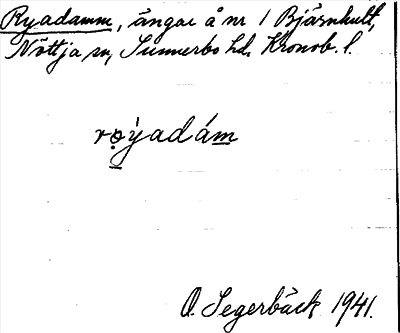 Ryadamm, ängar å nr 1 Bjärnhult,
Nöttja sn, Sunnerbo hd. Kronob. l.
rọ̲ýadám̲
O. Segerbäck 1941.